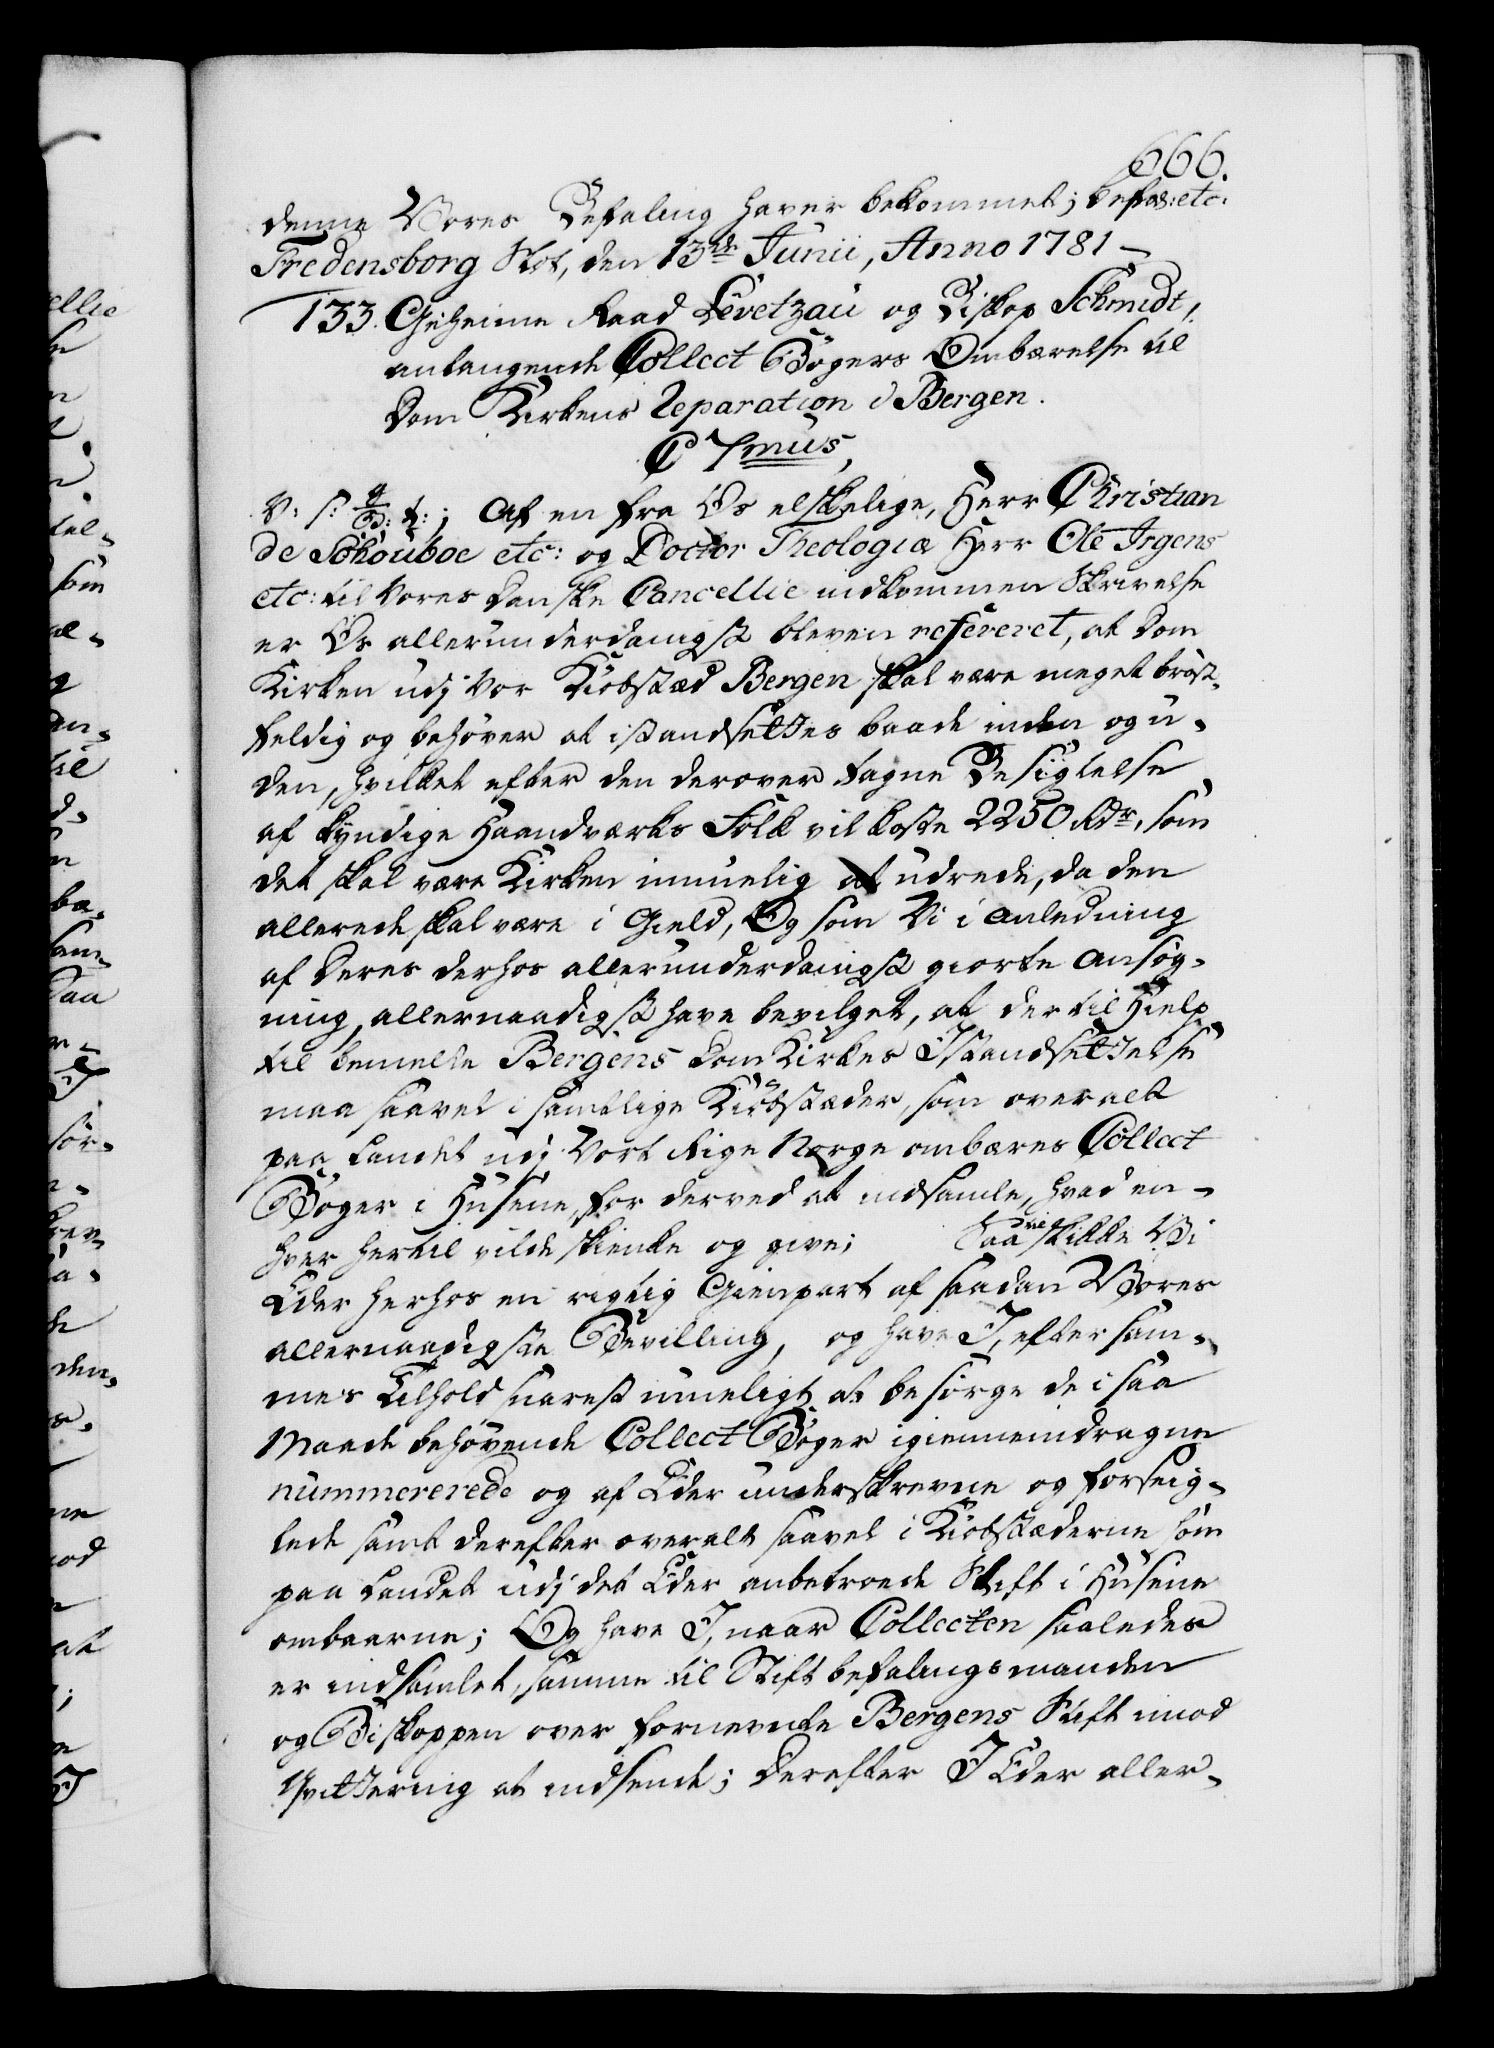 666.
denne Vores Befaling haver bekommet; Befal: etc:
Fredensborg Slot, den 13de Junii, Anno 1781 –
133. Geheime Raad Levetzau og Biskop Schmidt,
antangende Collect Bøgers Ombærelse til
Dom Kirkens Reparation i Bergen.
C 7mus,
V: S: G: t:; Af en fra Os elskelige, Herr Christian
de Schouboe etc: og Doctor Theologiæ Herr Ole Irgens
etc: til Vores Danske Cancellie indkommen Skrivelse
er Os allerunderdanigst bleven refereret, at Dom
Kirken udj Vor Kiøbstæd Bergen skal være meget brøst-
feldig og behøver at istandsættes baade inden og u-
den, hvilket efter den derover tagne Besigtelse
af kyndige Haandværks Folk vil koste 2250 Rdr, som
det skal være Kirken umuelig at udrede, da den
allerede skal være i Gield, Og som Vi i Anledning
af Deres derhos allerunderdanigst giorte Ansøg-
ning, allernaadigst have bevilget, at der til Hielp
til bemelte Bergens Dom Kirkes Istandsættelse
maa saavel i samtlige Kiøbstæder, som overalt
paa Landet udj Vort Rige Norge ombæres Collect
Bøger i Husene, for derved at indsamle, hvad en-
hver hertil vilde skienke og give; Saa ville skikke Vi
Eder herhos en rigtig Gienpart af saadan Vores
allernaadigste Bevilling, og have I, efter sam-
mes Tilhold snarest mueligt at besørge de i saa
Maade behøvende Collect Bøger igiennemdragne
nummererede og af Eder underskrevne og forseig-
lede samt derefter overalt saavel i Kiøbstæderne som
paa Landet udj det Eder anbetroede Stift i Husene
ombaarne; Og have I, naar Collecten saaledes
er indsamlet, samme til Stiftbefalingsmanden
og Biskoppen over fornevnte Bergens Stift imod
Qvittering at indsende; Derefter I Eder aller-